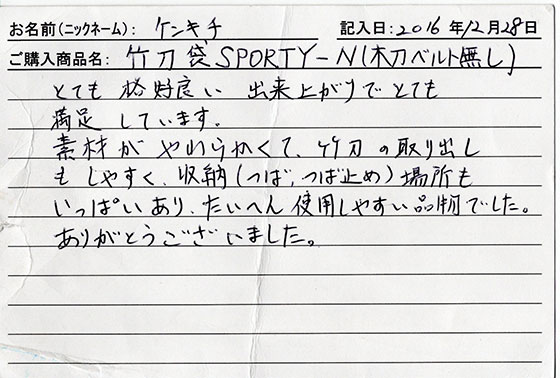 お名前(ニックネーム): ケンキチ 記入日:2016年12月28日
ご購入商品名: 竹刀袋SPORTY-N(木刀ベルト無し)
とても格好良い出来上がりでとても
満足しています。
素材がやわらかくて、竹刀の取り出し
もしやすく、収納(つば、つば止め)場所も
いっぱいあり、たいへん使用しやすい品物でした。
ありがとうございました。